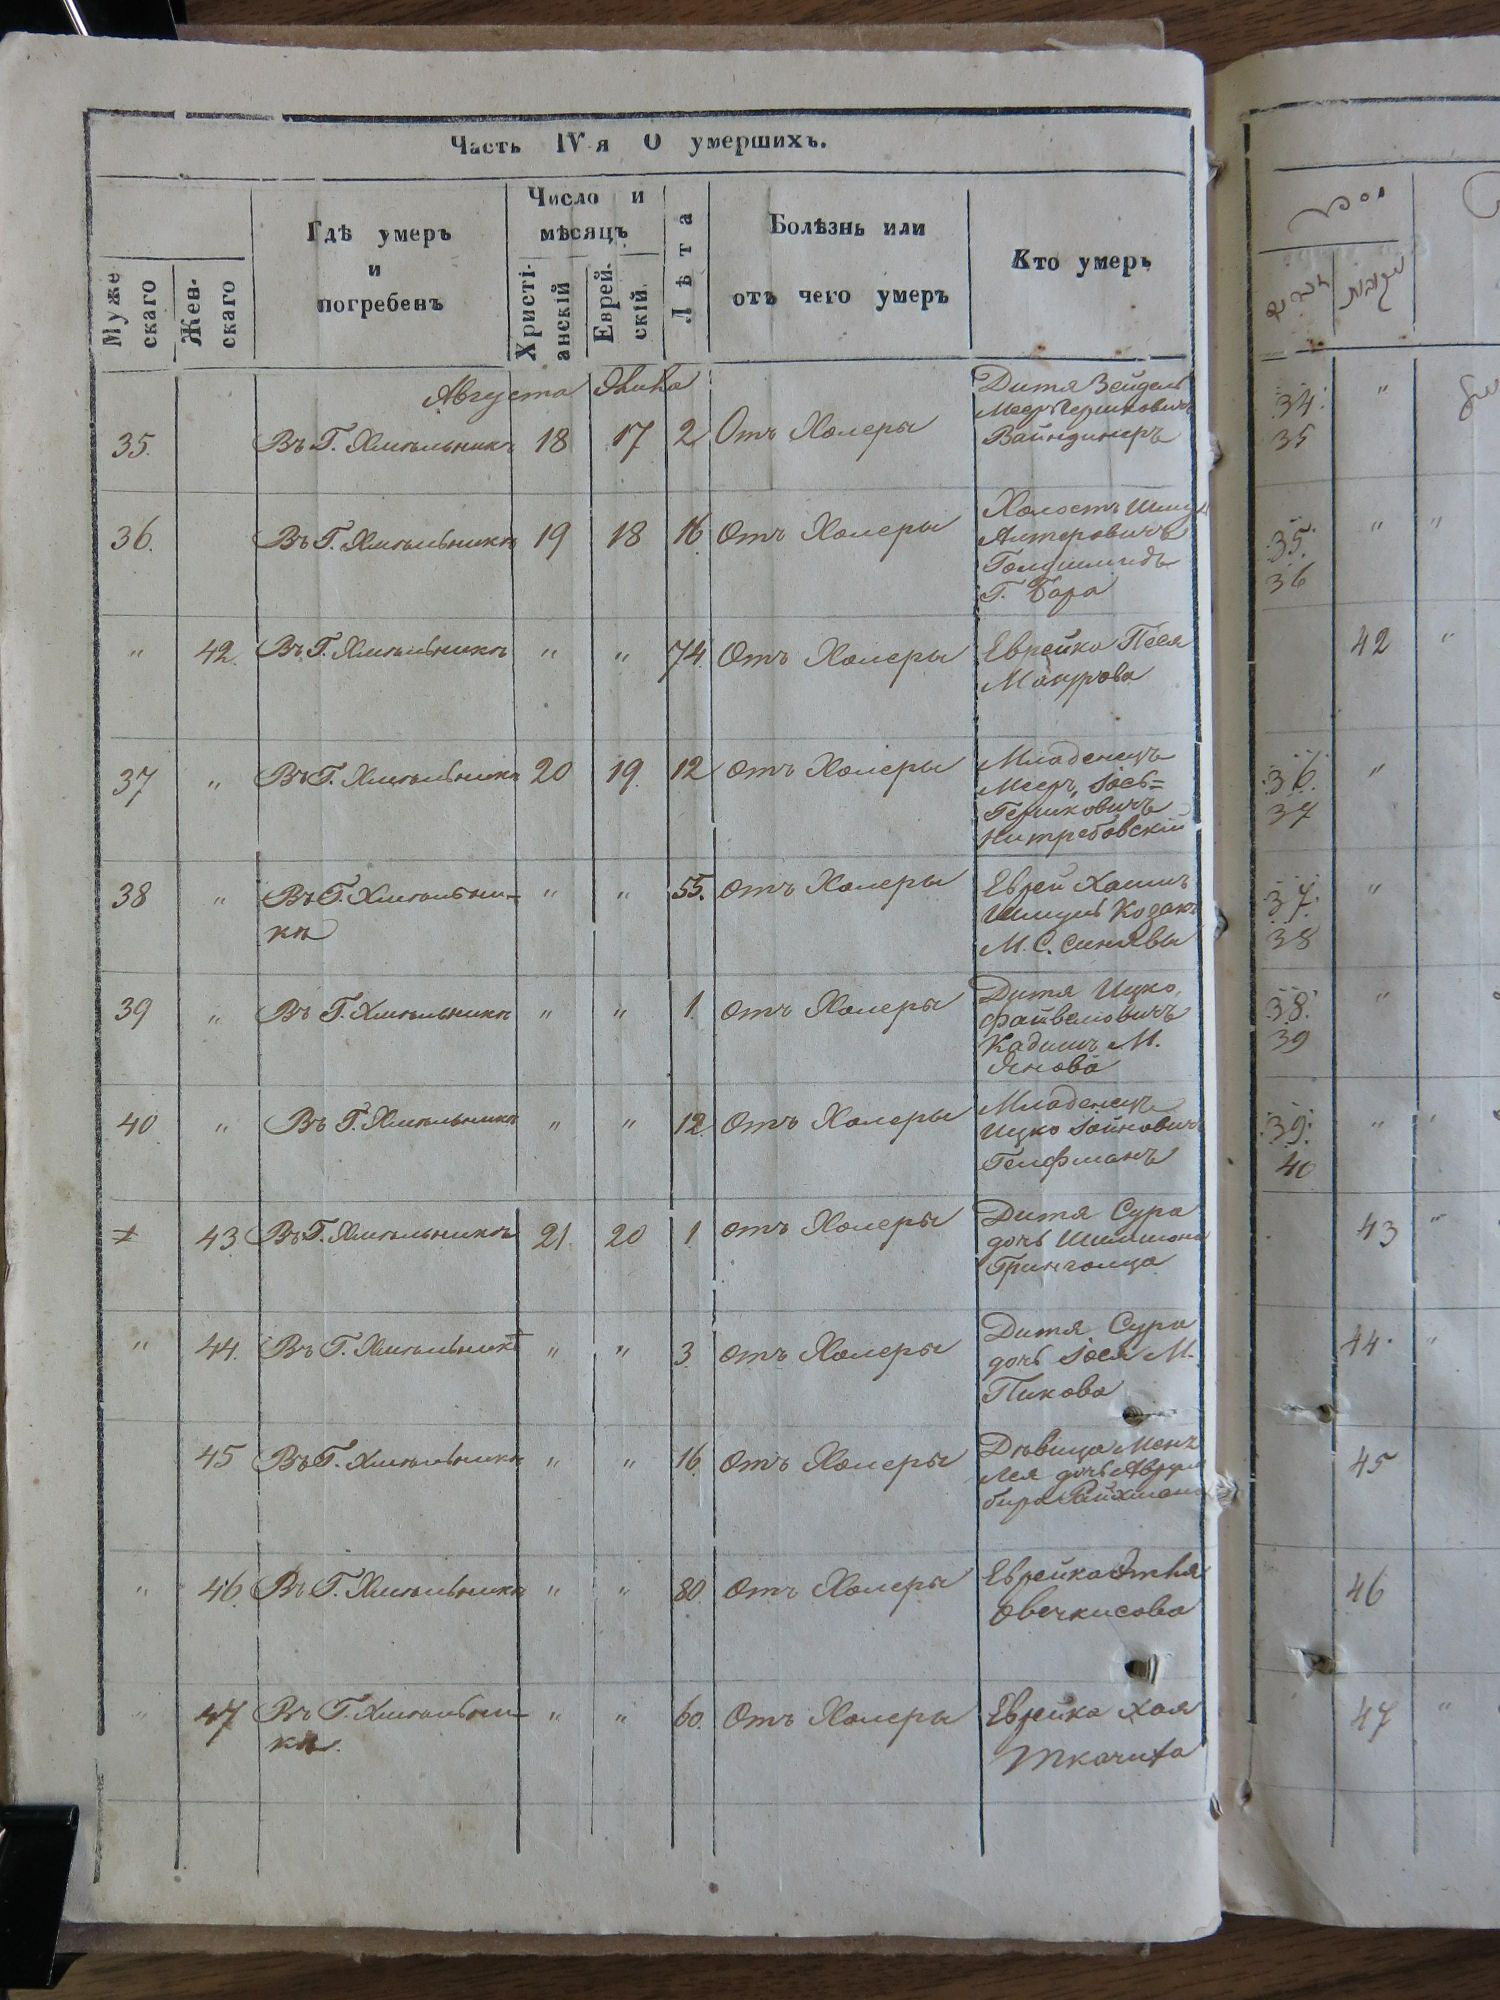 Часть IV я О умершихъ.
Муже
скаго
Жен-
скаго
Гдѣ умеръ
и
погребенъ
Число и
мѣсяцъ
Христі-
анскій
Еврей-
скій
Лѣта
Болѣзнь или
отъ чего умеръ
Кто умеръ
Августа
35. Въ Г. Хмѣльникѣ 18 17 2 Отъ Холеры
Дитя Зейдель
Вайндинеръ
36. Въ Г. Хмѣльникѣ 19 18 16 Отъ Холеры
Холостъ
Алтеровичъ
Голдшмидъ
Г. Бара
" 42. Въ Г. Хмѣльникѣ " " 74. Отъ Холеры
Еврейка Песя
37 " Въ Г. Хмѣльникѣ 20 19. 12 Отъ Холеры
Младенецъ
Мееръ, Іось=
Гершковичъ
Нитребовскій
38 " Въ Г. Хмѣльни-
кѣ " " 55. Отъ Холеры
Еврей Хаимъ
Шмуль Козакъ
М. С. Синявы
39 " Въ Г. Хмѣльникѣ " " 1. Отъ Холеры
Дитя Ицко
Файвеловичъ
Кадишъ М.
Янова
40 " Въ Г. Хмѣльникѣ " " 12. Отъ Холеры
Младенецъ
Ицко
Гелфманъ
43 Въ Г. Хмѣльникѣ 21. 20 1 Отъ Холеры
Дитя Сура
дочь Шимшона
Грингольца
" 44. Въ Г. Хмѣльникѣ " " 3 Отъ Холеры
Дитя Сура
дочь Іося М.
Пикова
45 Въ Г. Хмѣльникѣ " " 16 Отъ Холеры
Дѣвица
Лея дочь
Райхмана
" 46. Въ Г. Хмѣльникѣ " " 80. Отъ Холеры
Еврейка
Овечкисова
" 47 Въ Г. Хмѣльни-
кѣ. " " 60. Отъ Холеры
Еврейка Хая
Ткачиха
34.
35
35.
36
42
36.
37
37.
38
38.
39
39.
40
43
44.
45
46
47